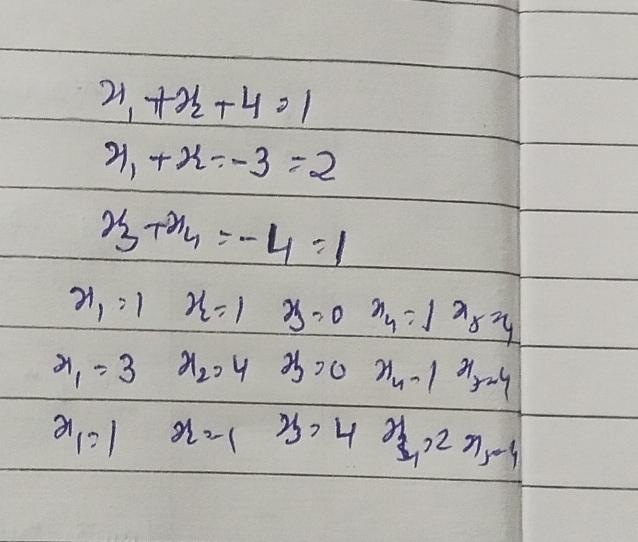 x₁ + x₂ + 4 = 1
x₁ + x = -3 = 2
x₃ + x₄ = -4 = 1
x₁ = 1 x₂ = 1 x₃ = 0 x₄ = 1 x₅ = 4
x₁ = 3 x₂ = 4 x₃ = 0 x₄ = 1 x₅ = 4
x₁ = 1 x = 1 x₃ = 4 x₄ = 2 x₅ = 4